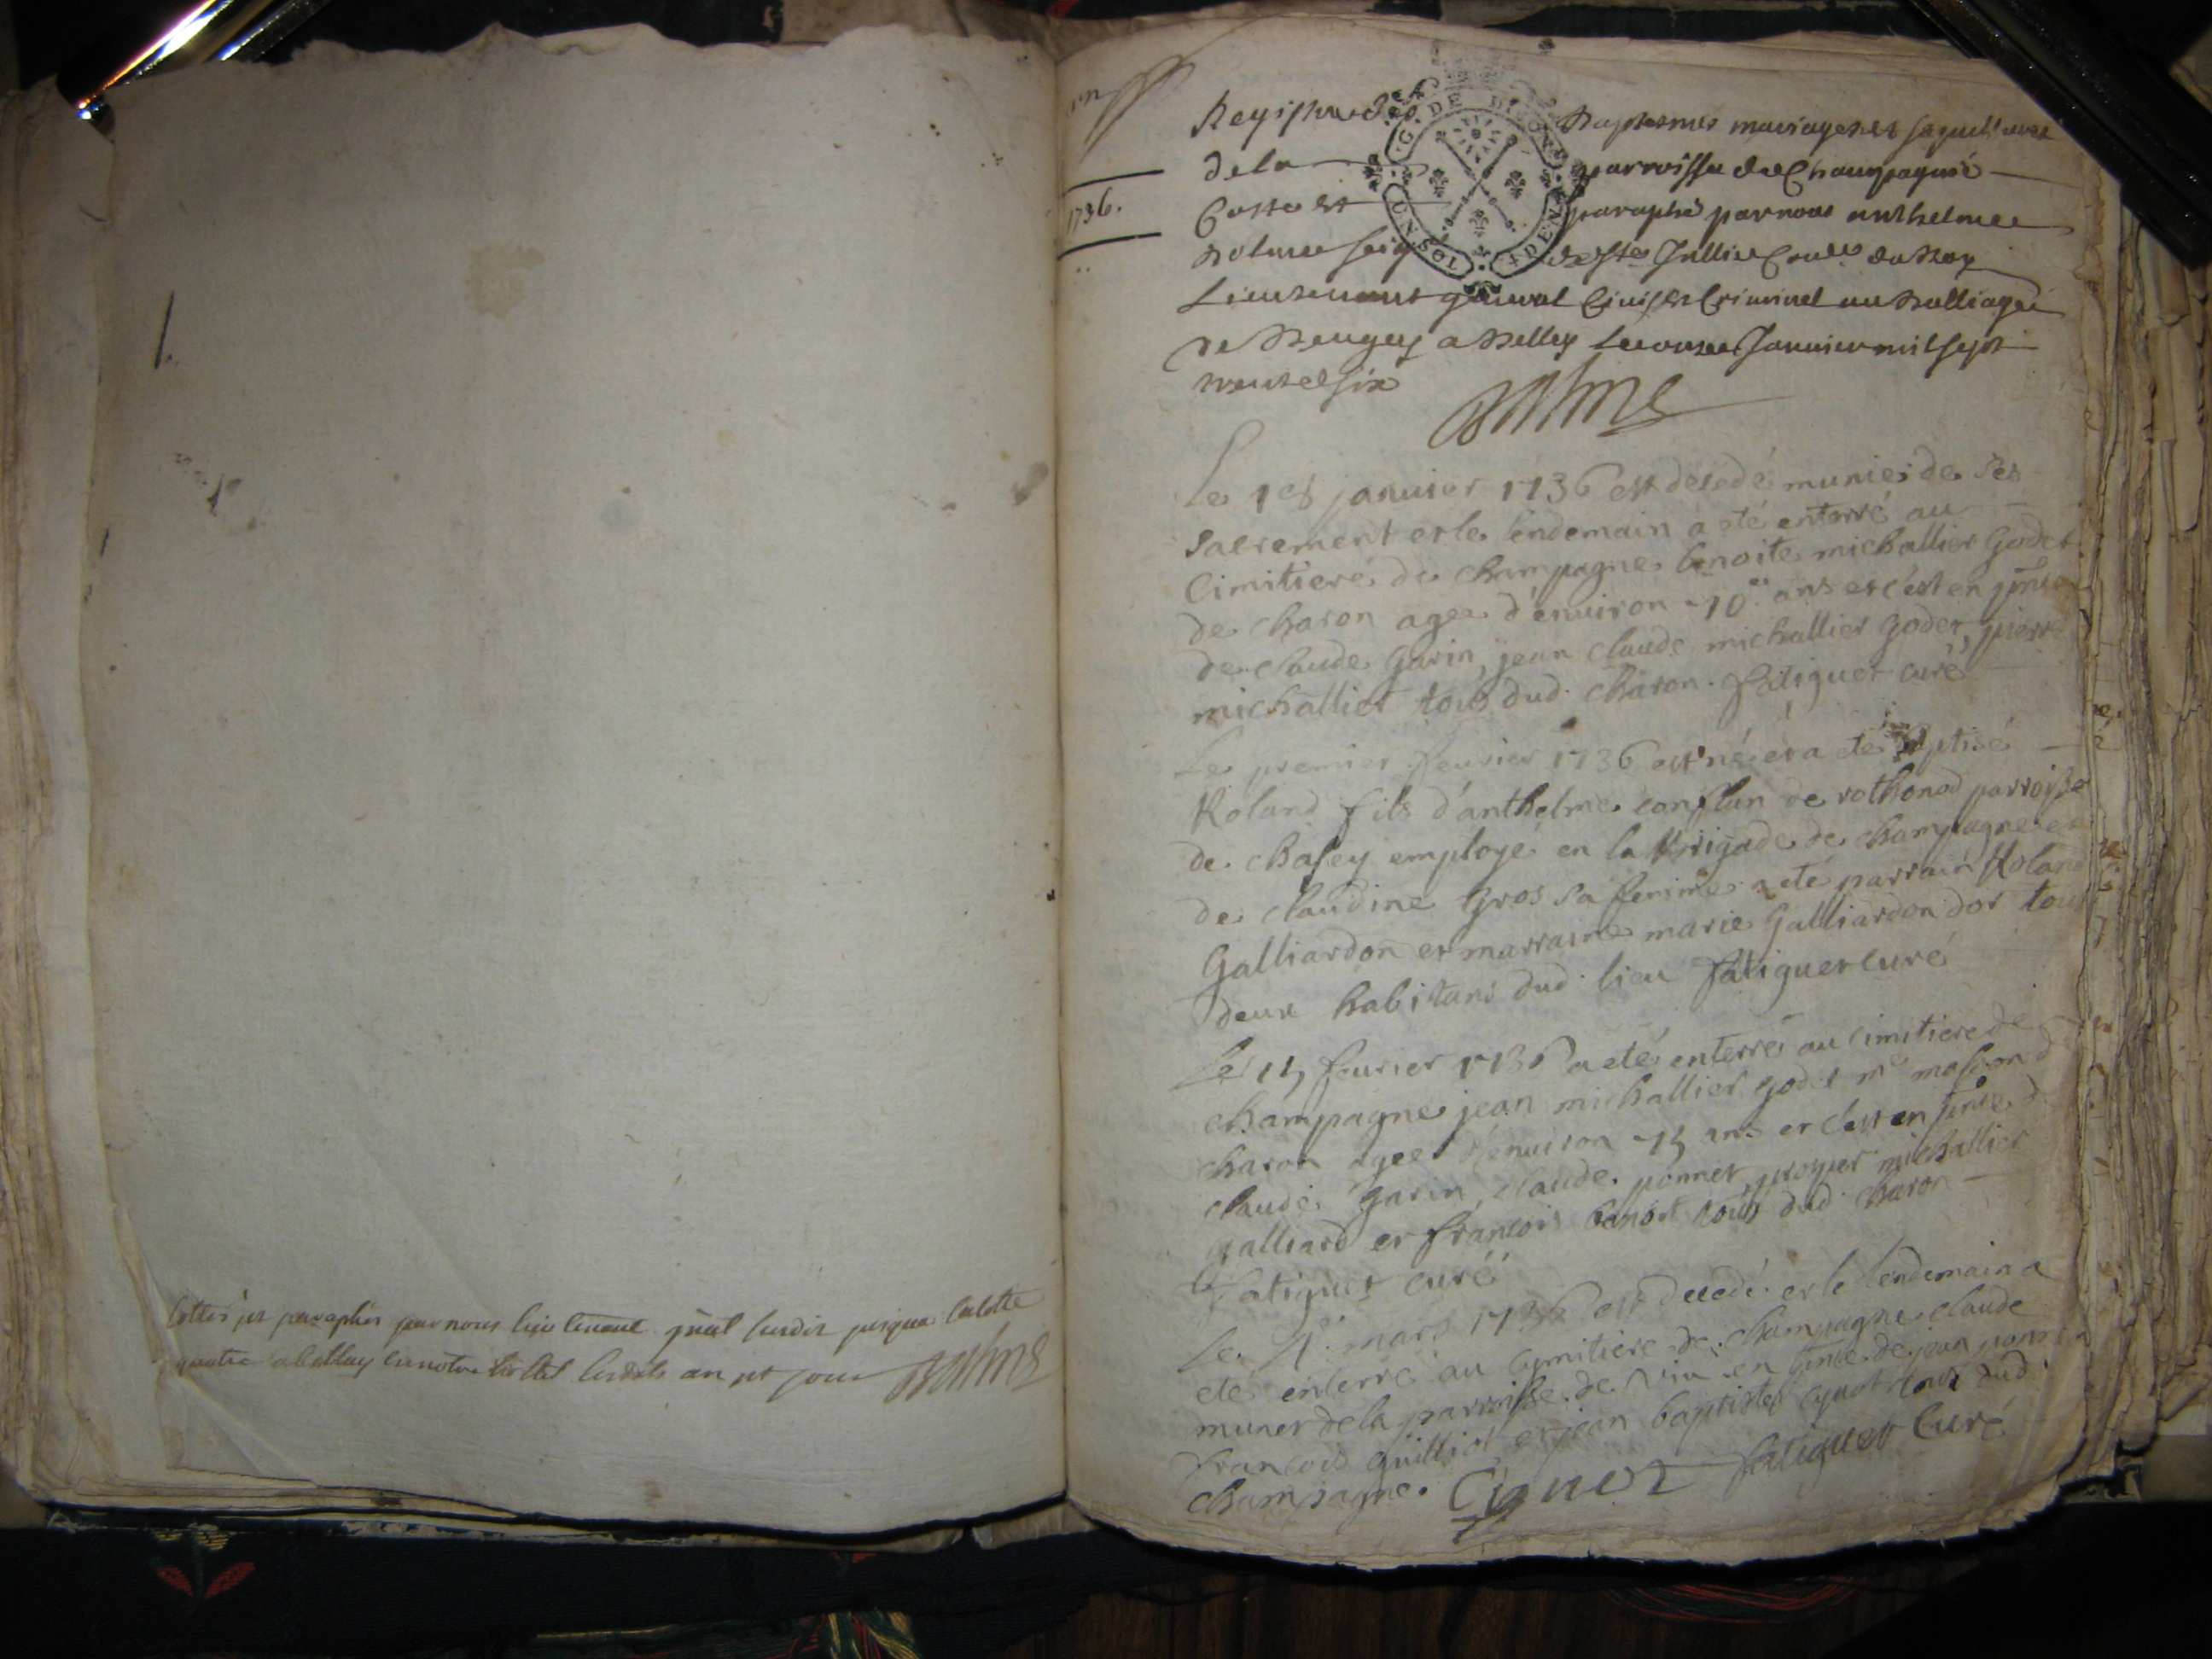 Cottés et paraphés par nous lieutenant gnal susdit jusques
quatre a Belley en notre hostel lesdits an et jour Balme
1736.
Registre des baptesmes mariages et sepultures
de la parroisse de Champagne
Cotté et paraphé par nous anthelme
Balme seig de Ste Jullie du Roy
Lieutenant general Civil et Criminel au Balliage
de Beugey a Belley Le onze Janvier mil sept
trente six
Balme
Le janvier 1736 est decedé munie de ses
sacrement et le lendemain a eté enterré au
Cimitiere de champagne benoite michallier Godet
de charon agee d'environ 70 ans et c'est en pnse
de claude Garin, jean claude michallier godet, pierre
michalliet tous dud. charon. fatiguet curé
Le premier feurier 1736 est né et a eté baptisé
Roland fils d'anthelme conflan de rothonod parroisse
de chasey employé en la Brigade de champagne et
de claudine Gros sa femme a eté parrain Roland
Galliardon et marraine marie Galliardon dor tous
deux habitans dud. lieu fatiguet curé
Le feurier 1736 a eté enterré au cimitiere de
champagne jean michallier godet me masson d
charon agee d'enuiron ans et c'est en pnse d
claude Garin, claude ponnet, michallier
galliard et francois tous dud. charon
fatiguet curé
Le mars 1736 est decedé et le lendemain a
eté enterré au cymitiere de champagne claude
muner de la parroisse de en pnse de jean
francois Guilliot et jean baptiste cyuot tous dud.
champagne. fatiguet Curé